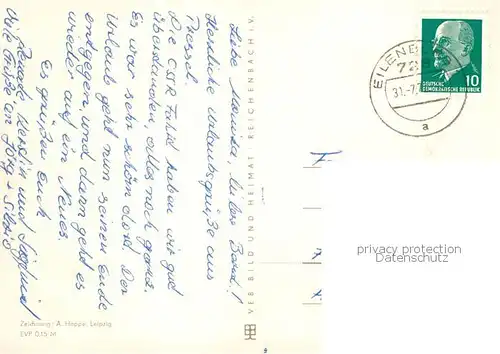 Liebe Monika, lieber Bernd!
Herzliche Urlaubsgrüße aus
Die CSSR Fahrt haben wir gut
überstanden, alles noch ganz.
Es war sehr schön dort. Der
Urlaub geht nun seinem Ende
entgegen, und dann geht es
wieder auf ein Neues.
Es grüßen euch
Kerstin und Siegfried
Viele Grüße an Jörg + Silvio
Zeichnung: A. Hoppe, Leipzig
EVP 0,15 M
VEB BILD UND HEIMAT · REICHENBACH I. V.
EILENB
728
31.-7.
a
10
DEUTSCHE
DEMOKRATISCHE REPUBLIK
privacy protection
Datenschutz